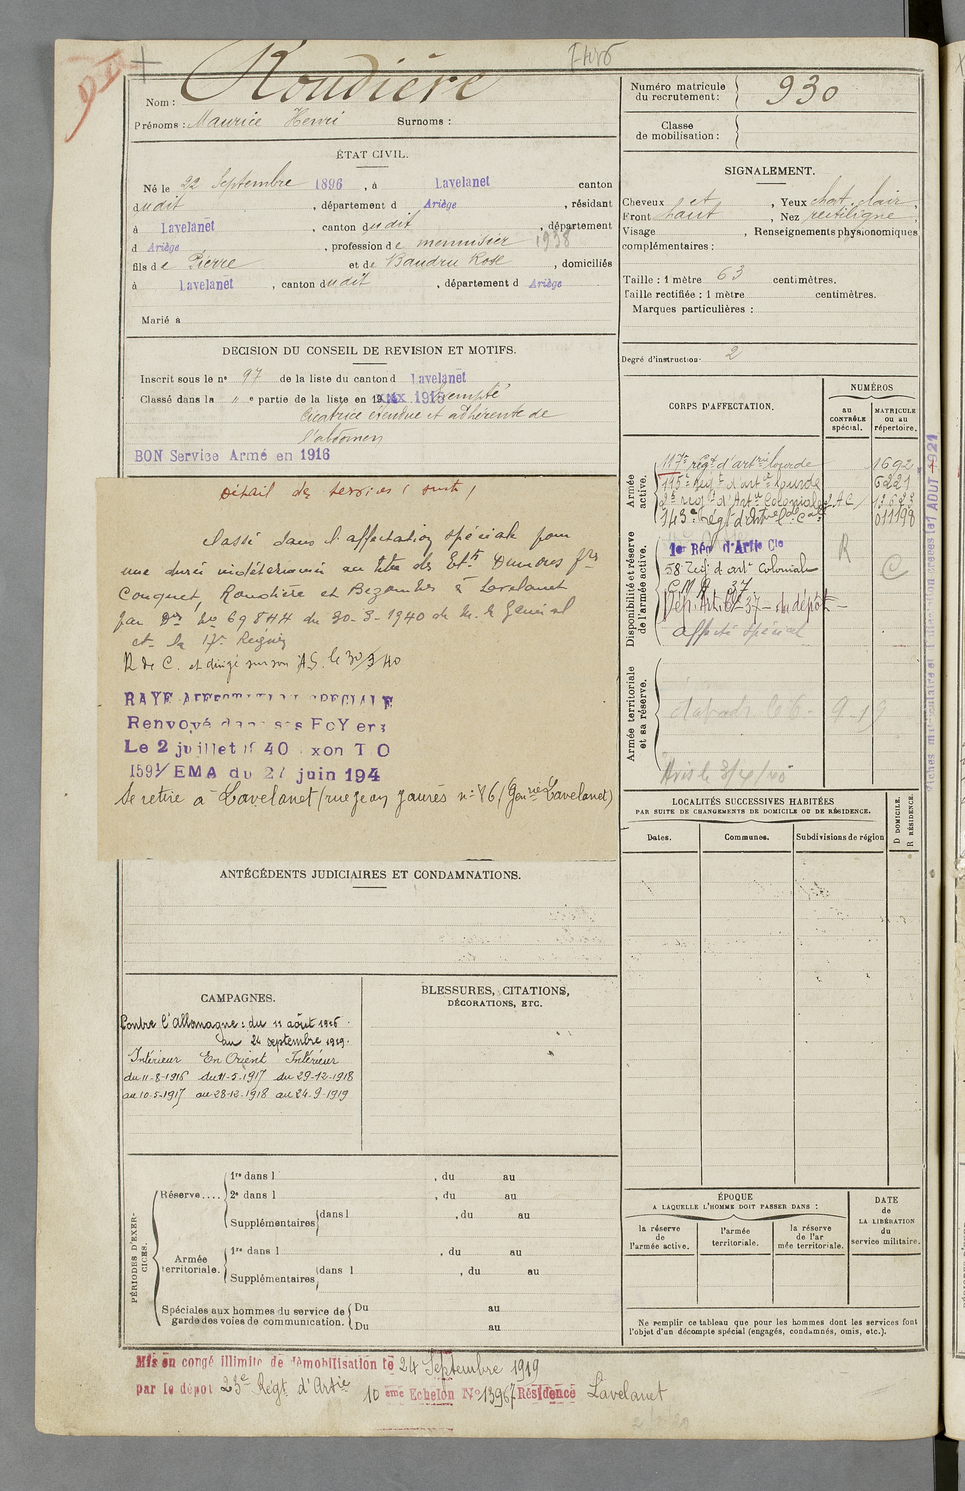 930
Nom : Roudière
Prénoms : Maurice Henri Surnoms :
Numéro matricule du recrutement : 930
Classe de mobilisation :
ÉTAT CIVIL.
Né le 22 Septembre 1896, à Lavelanet canton
dudit, département d Ariège, résidant
à Lavelanet, canton dudit, département
d Ariège, profession de menuisier 1938
fils de Pierre et de Baudru Rose, domiciliés
à Lavelanet, canton dudit, département d Ariège
Marié à
SIGNALEMENT.
Cheveux chat, Yeux chat. clair,
Front haut, Nez rectiligne,
Visage , Renseignements physionomiques
complémentaires :
Taille : 1 mètre 63 centimètres.
Taille rectifiée : 1 mètre centimètres.
Marques particulières :
Degré d'instruction. 2
DECISION DU CONSEIL DE REVISION ET MOTIFS.
Inscrit sous le n° 97 de la liste du canton d Lavelanet
Classé dans la " e partie de la liste en 1916 Exempté
Cicatrice étendue et adhérente de
l'abdomen
BON Service Armé en 1916
Détail des services (suite)
Classé dans l'affectation spéciale pour
une durée indéterminée au titre des Etts Dumons frs
Conquet, Roudière et Bezombes à Lavelanet
par Dn No 698 HH du 30-3-1940 de M. le Général
Ct la 17e Région
R de C. et dirigé sur son A.S. le 30/3/40
RAYE AFFECTATION SPECIALE
Renvoyé dans ses FoYers
Le 2 juillet 1940 xon T O
1591/EMA du 27 juin 194
Se retire à Lavelanet (rue Jean Jaurès n° 86 (Genrie Lavelanet)
CORPS D'AFFECTATION.
NUMÉROS
au CONTRÔLE spécial.
MATRICULE ou au répertoire.
Armée active.
117e régt d'artrie lourde 1692
115e régt d'artie lourde 6221
2e régt d'Artie Coloniale (2 AC) 13623
143e Régt d'Artrie lde Cale 011198
Disponibilité et réserve de l'armée active.
1er Rég d'Artie Cle R
58 Régt d'art Coloniale C
Dépt Artie 37 - du dépôt -
affecté spécial
Armée territoriale et sa réserve.
Avis le 3/4/40
LOCALITÉS SUCCESSIVES HABITÉES
PAR SUITE DE CHANGEMENTS DE DOMICILE OU DE RÉSIDENCE.
Dates. Communes. Subdivisions de région
D DOMICILE.
R RÉSIDENCE.
ANTÉCÉDENTS JUDICIAIRES ET CONDAMNATIONS.
CAMPAGNES.
Contre l'Allemagne : du 11 août 1916
au 24 septembre 1919.
Intérieur En Orient Intérieur
du 11-8-1916 du 11-5-1917 du 29-12-1918
au 10-5-1917 au 28-12-1918 au 24-9-1919
BLESSURES, CITATIONS,
DÉCORATIONS, ETC.
PÉRIODES D'EXERCICES.
Réserve.... 1re dans l , du au
2e dans l , du au
Supplémentaires dans l , du au
Armée territoriale. 1re dans l , du au
Supplémentaires dans l , du au
Spéciales aux hommes du service de garde des voies de communication. Du au
Du au
ÉPOQUE
A LAQUELLE L'HOMME DOIT PASSER DANS :
la réserve de l'armée active.
l'armée territoriale.
la réserve de l'ar mée territoriale.
DATE de LA LIBÉRATION du service militaire.
Ne remplir ce tableau que pour les hommes dont les services font
l'objet d'un décompte spécial (engagés, condamnés, omis, etc.).
Mis en congé illimité de démobilisation le 24 Septembre 1919
par le dépôt 23e Régt d'Artie 10 ème Echelon No 13967 Résidence Lavelanet